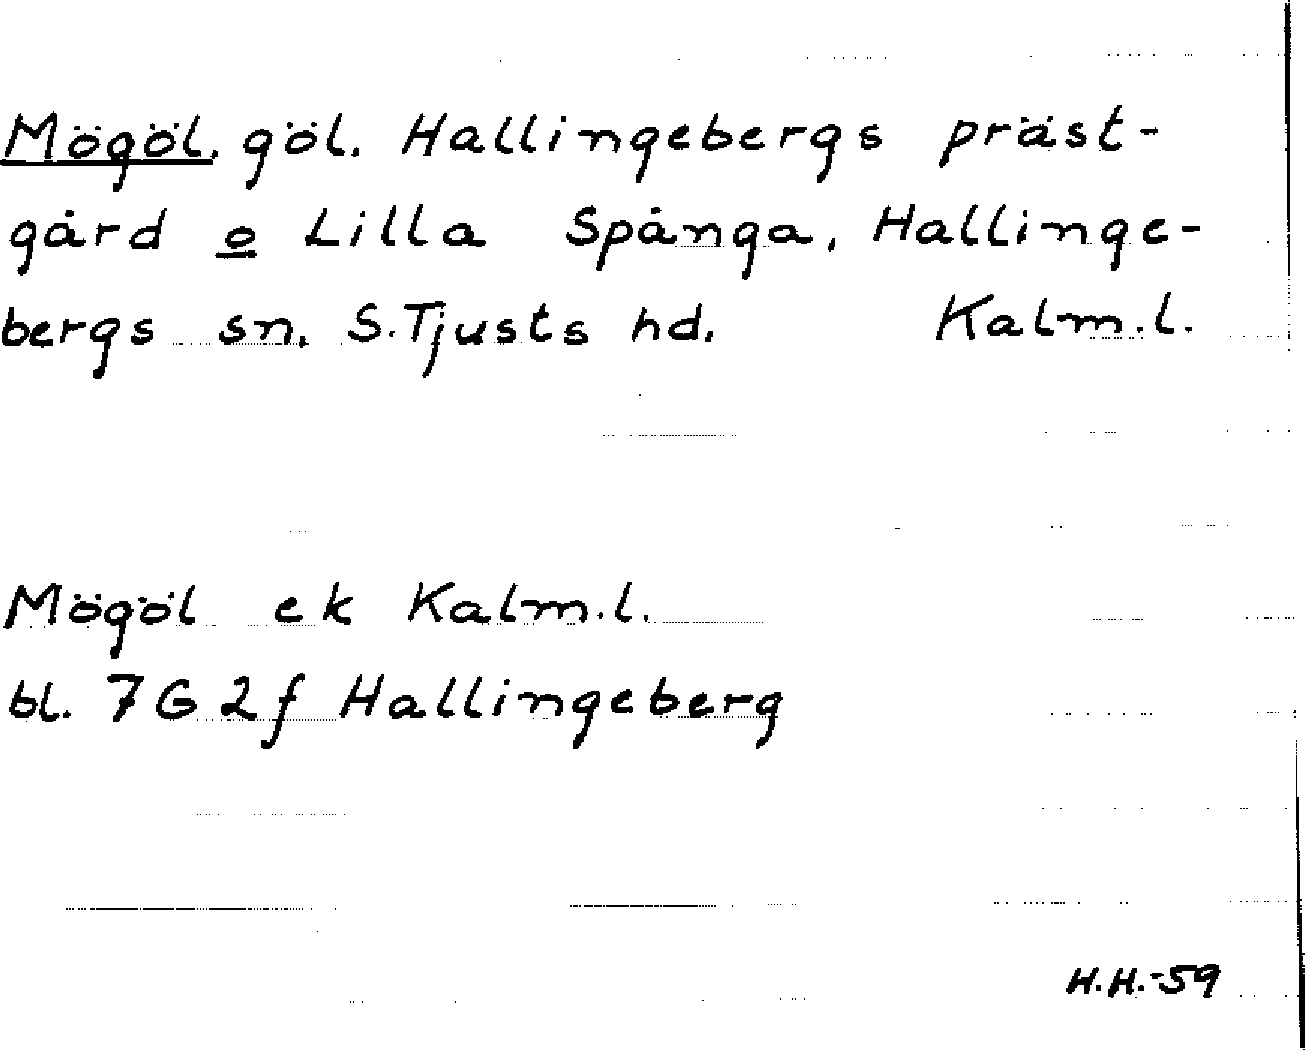 Mögöl. göl. Hallingebergs präst-
gård o Lilla Spånga, Hallinge-
bergs sn. S.Tjusts hd. Kalm.l.
Mögöl ek Kalm.l.
bl. 7G 2f Hallingeberg
H.H.-59